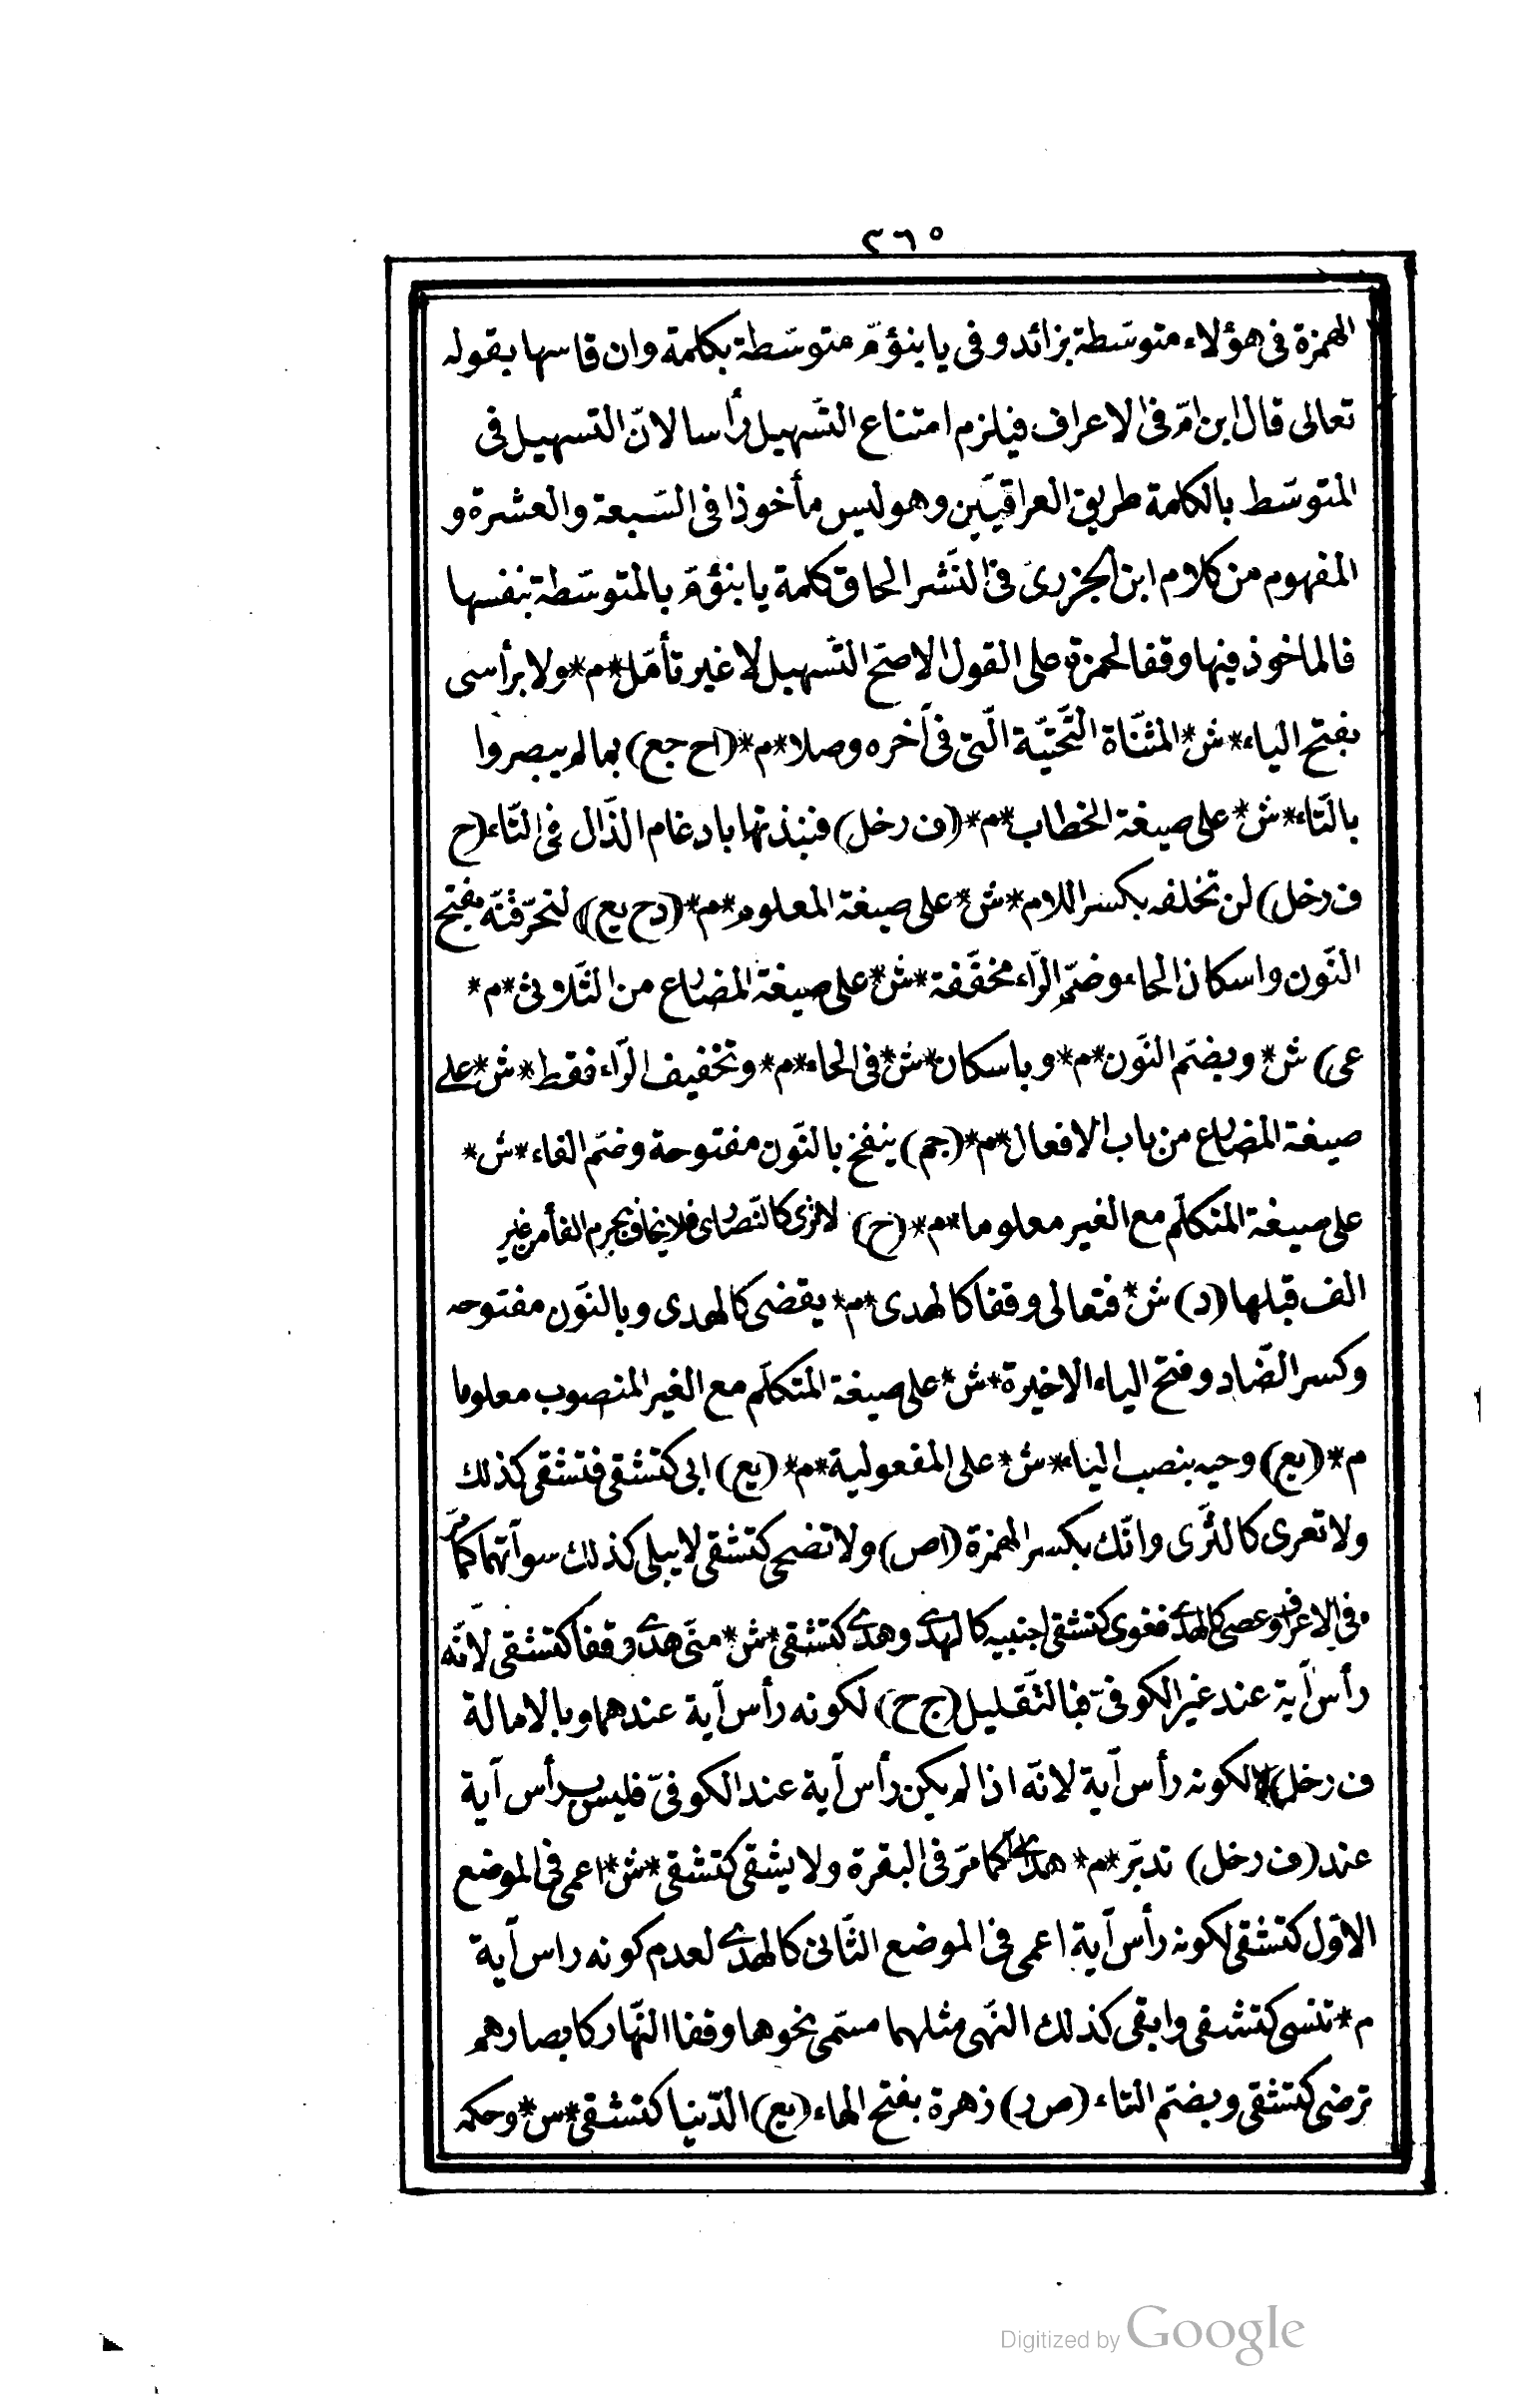 ٢٦٥
الهمزة فى هؤلاء متوسّطة بزائد و فى يا بنؤمّ متوسّطة بكلمة وان قاسها بقوله
تعالى قال ابن امّ فى الاعراف فيلزم امتناع التسهيل رأسا لانّ التسهيل فى
المتوسّط بالكلمة طريق العراقيّين وهو ليس مأخوذا فى السّبعة والعشرة و
المفهوم من كلام ابن الجزرى فى النّشر الحاق كلمة يا بنؤمّ بالمتوسّطة بنفسها
فالماخوذ فيها وقفا لحمزة على القول الاصحّ التّسهيل لا غير تأمّل*م*ولا برأسى
بفتح الياء*ش*المثنّاة التّحتيّة الّتى فى آخره وصلا*م*(اح جع) بما لم يبصروا
بالتّاء*ش*على صيغة الخطاب*م*(ف رخل) فنبذتها بادغام الذّال فى التّاء (ح
ف رخل) لن تخلفه بكسر اللام*ش*على صيغة المعلوم*م*(دح يع) لنحرّقنّه بفتح
النّون واسكان الحاء وضمّ الرّاء مخفّفة*ش*على صيغة المضارع من الثّلاثى*م*
عى) ش*وبضمّ النّون*م*وباسكان*ش*فى الحاء*م*وتخفيف الرّاء فقط*ش*على
صيغة المضارع من باب الافعال*م*(جم) ينفخ بالنّون مفتوحة وضمّ الفاء*ش*
على صيغة المتكلّم مع الغير معلوما*م*(ح) لا ترى كالنّصارى فلا يخاف بجزم الفأ من غير
الف قبلها (د) ش*فتعالى وقفا كالهدى*م*يقضى كالهدى وبالنّون مفتوحه
وكسر الضّاد وفتح الياء الاخيرة*ش*على صيغة المتكلّم مع الغير المنصوب معلوما
م*(يع) وحيه بنصب الياء*ش*على المفعولية*م*(يع) ابى كتشقى فتشقى كذلك
ولا تعرى كالثّرى وانّك بكسر الهمزة (اص) ولا تضحى كتشقى لا يبلى كذلك سوآتهما كما مرّ
فى الاعراف وعصى كالهدى فغوى كتشقى اجتبيه كالهدى وهدى كتشقى*ش*منّى هدى وقفا كتشقى لانّه
رأس آية عند غير الكوفىّ فبالتّقليل (ج ح) لكونه رأس آية عندهما وبالامالة
ف رخل) لا لكونه رأس آية لانّه اذا لم يكن رأس آية عند الكوفىّ فليس برأس آية
عند (ف رخل) تدبّر*م*هداى كما مرّ فى البقرة ولا يشقى كتشقى*ش*اعمى فى الموضع
الاوّل كتشقى لكونه رأس آية اعمى فى الموضع الثّانى كالهدى لعدم كونه راس آية
م*تنسى كتشقى وابقى كذلك النّهى مثلهما مسمّى نحوها وقفا النّهار كابصارهم
ترضى كتشقى وبضمّ التاء (ص ر) زهرة بفتح الهاء (يع) الدّنيا كتشقى*س*وحكمه
Digitized by Google